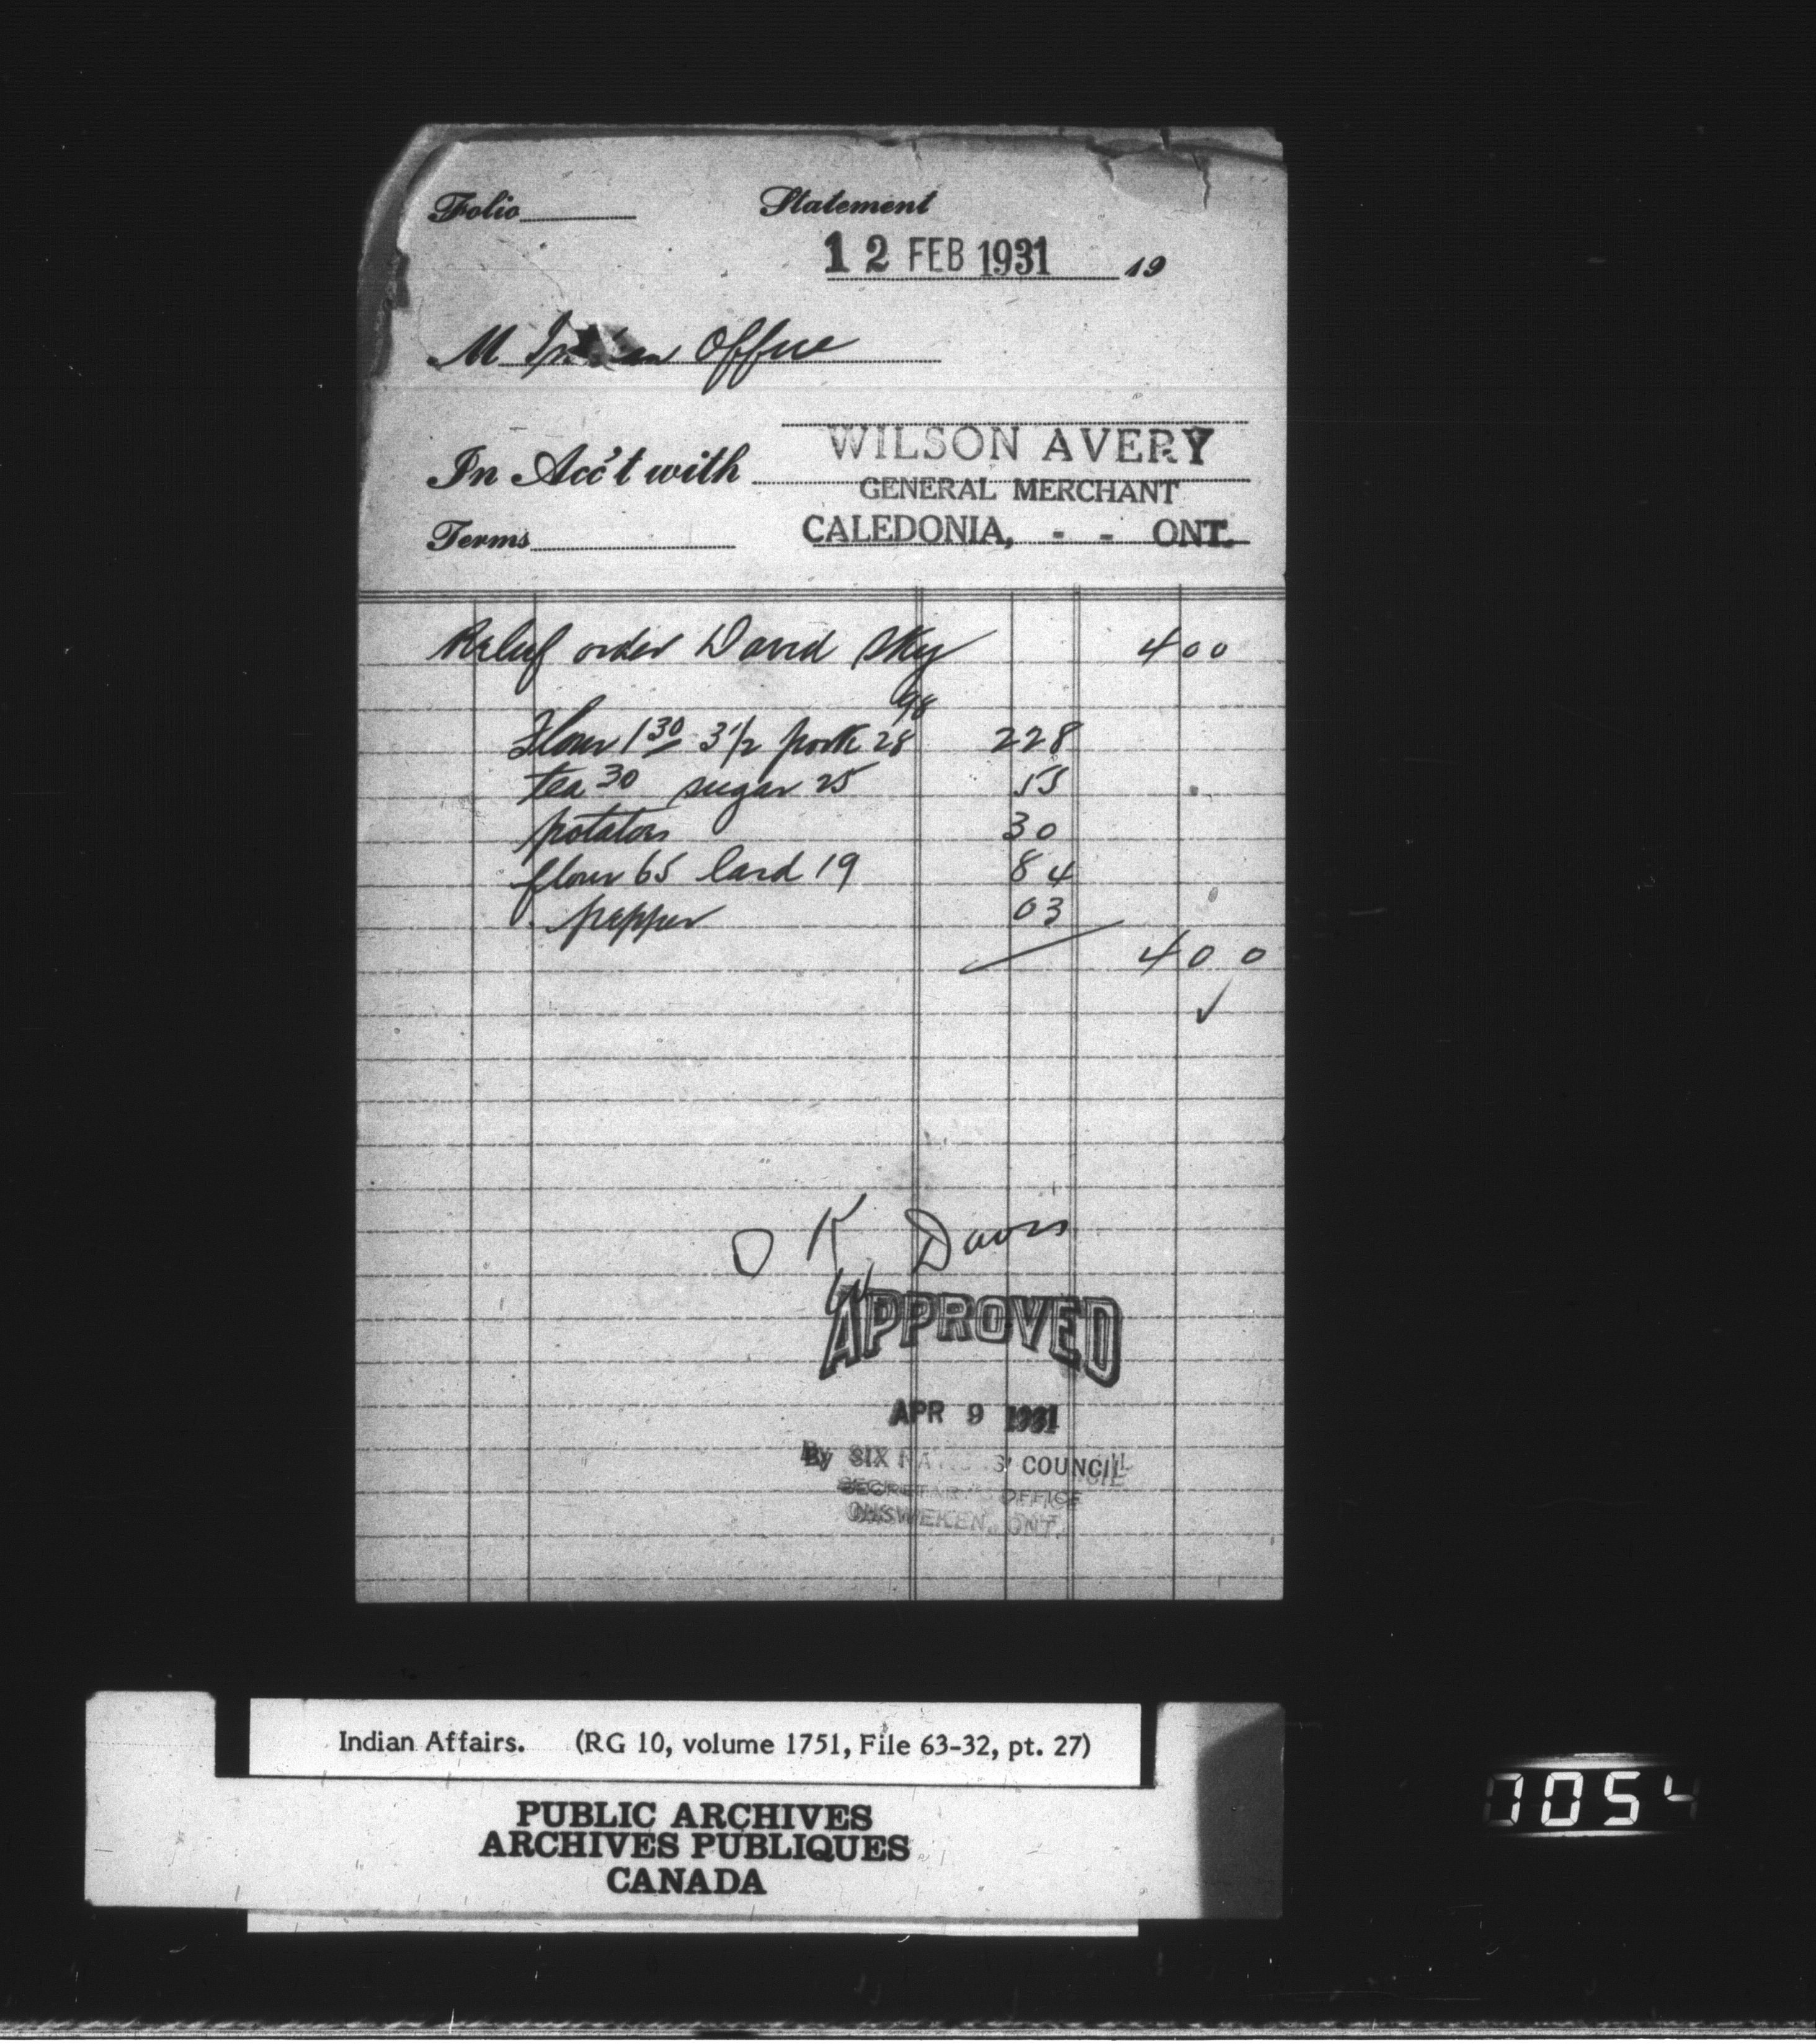 Folio
Statement
12 FEB 1931 19
M Indian Office
In Acc't with WILSON AVERY
GENERAL MERCHANT
Terms CALEDONIA, - - ONT.
Relief order David Sky 400
98
Flour 1 30 3 1/2 pork 28 228
tea 30 sugar 25 55
potatoes 30
flour 65 lard 19 84
pepper 03
400
O K Davis
APPROVED
APR 9 1931
By SIX NATIONS' COUNCIL
SECRETARY'S OFFICE
OHSWEKEN, ONT.
Indian Affairs. (RG 10, volume 1751, File 63-32, pt. 27)
PUBLIC ARCHIVES
ARCHIVES PUBLIQUES
CANADA
1054